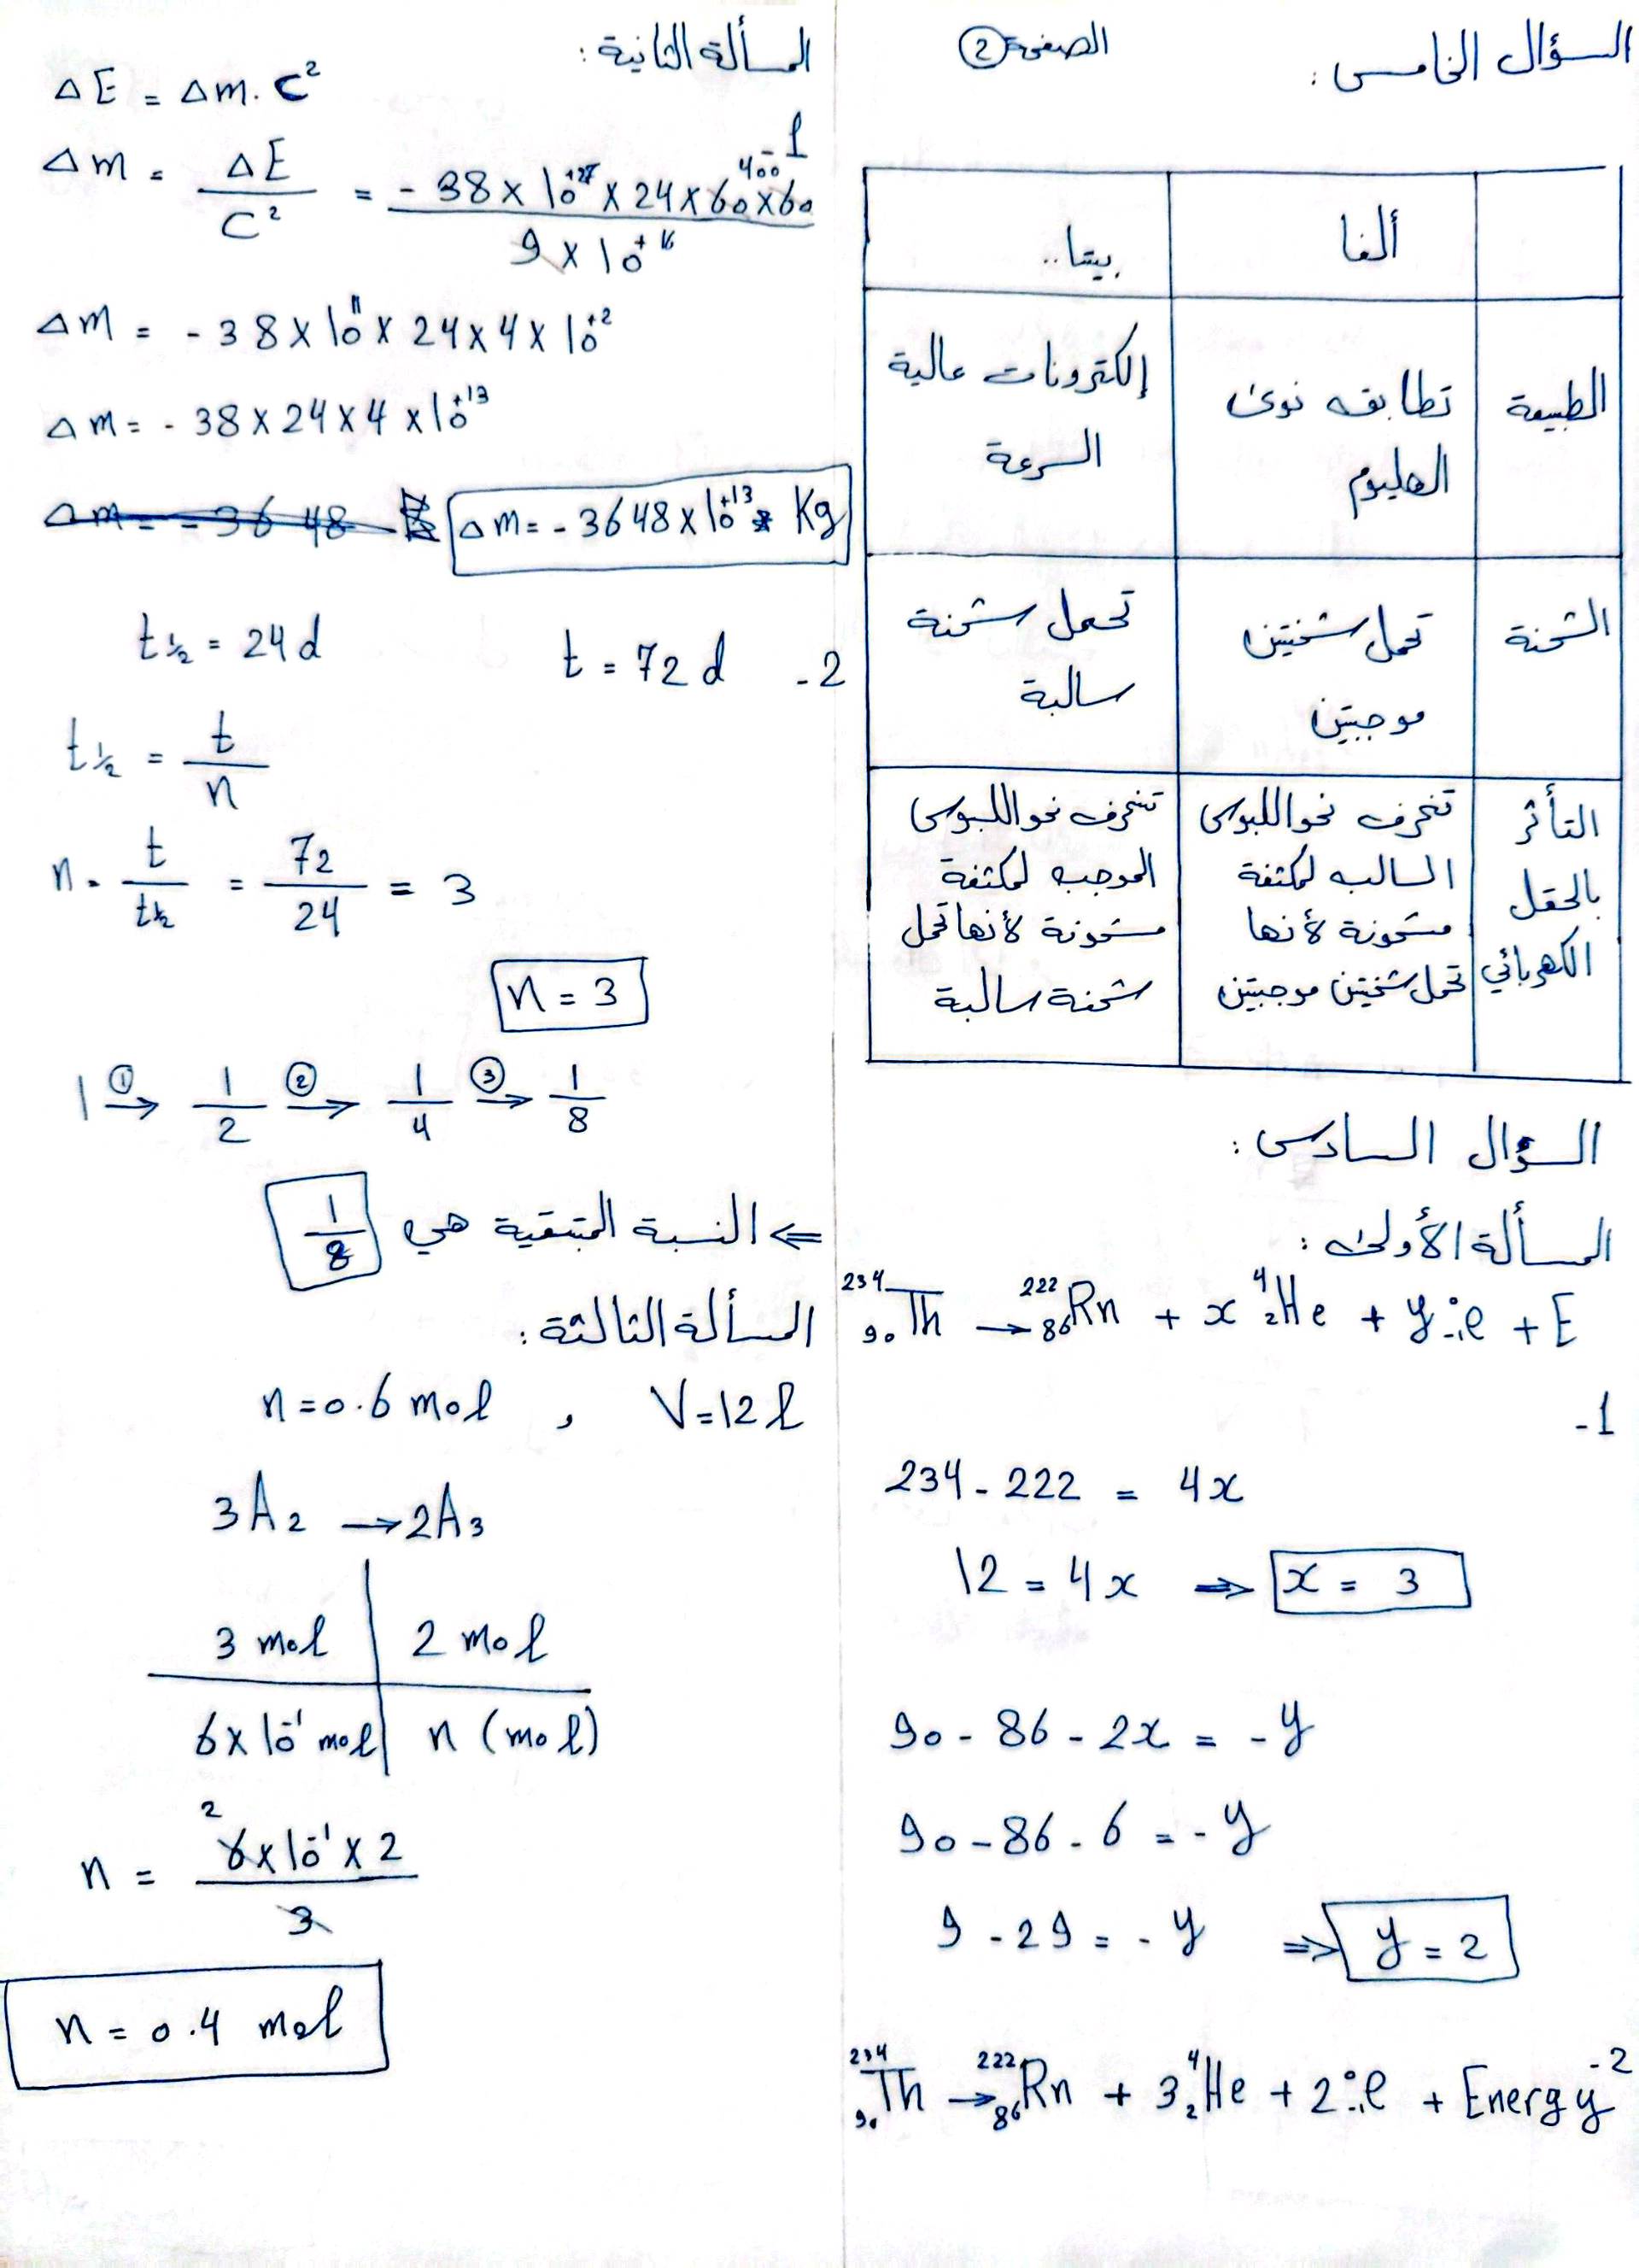 الصفحة ②
السؤال الخامس :
ألفا
بيتا..
الطبيعة
تطابق نوى
الهليوم
إلكترونات عالية
السرعة
الشحنة
تحمل شحنتين
موجبتين
تحمل شحنة
سالبة
التأثر
بالحقل
الكهربائي
تنحرف نحو اللبوس
السالب لمكثفة
مشحونة لأنها
تحمل شحنتين موجبتين
تنحرف نحو اللبوس
الموجب لمكثفة
مشحونة لأنها تحمل
شحنة سالبة
السؤال السادس :
المسألة الأولى :
²³⁴₉₀Th → ²²²₈₆Rn + x ⁴₂He + y ⁰₋₁e + E
-1
234 - 222 = 4x
12 = 4x ⇒ x = 3
90 - 86 - 2x = - y
90 - 86 - 6 = - y
9 - 29 = - y ⇒ y = 2
-2
²³⁴₉₀Th → ²²²₈₆Rn + 3 ⁴₂He + 2 ⁰₋₁e + Energy
المسألة الثانية :
-1
ΔE = Δm . C²
Δm = ΔE / C² = - 38 × 10⁺²⁷ × 24 × 60 × 60 / 9 × 10⁺¹⁶
400
Δm = - 38 × 10¹¹ × 24 × 4 × 10⁺²
Δm = - 38 × 24 × 4 × 10⁺¹³
Δm = - 3648
Δm = - 3648 × 10⁺¹³ Kg
-2 t = 72 d t½ = 24 d
t½ = t / n
n = t / t½ = 72 / 24 = 3
n = 3
1 →① 1/2 →② 1/4 →③ 1/8
⇐ النسبة المتبقية هي 1/8
المسألة الثالثة :
n = 0.6 mol , V = 12 l
3A₂ → 2A₃
3 mol 2 mol
6 × 10⁻¹ mol n (mol)
n = 6 × 10⁻¹ × 2 / 3
2
n = 0.4 mol